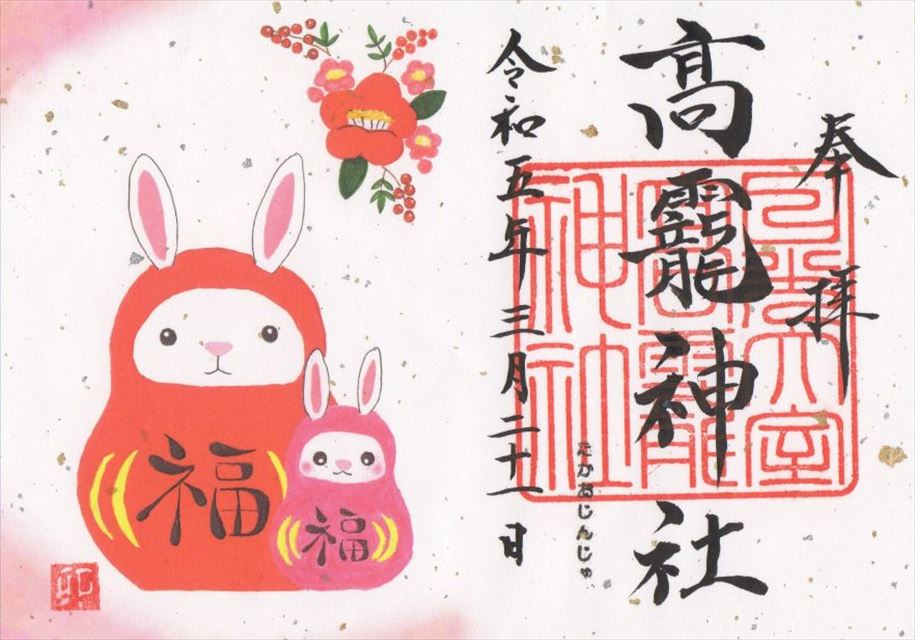 奉拝
日光大室
高龗
神社
高龗神社
たかおじんじゃ
令和五年三月二十一日
福
福
卯